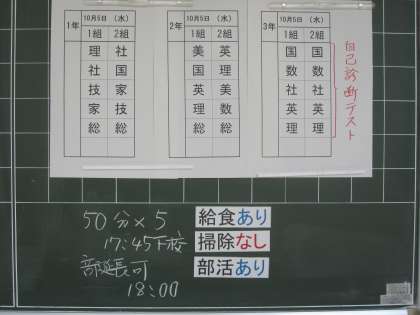 1年 10月5日 (水)
1組 2組
理 社
社 国
技 家
家 技
総 総
2年 10月5日 (水)
1組 2組
美 英
国 理
英 美
理 数
総 総
3年 10月5日 (水)
1組 2組
国 国
数 数
社 社
英 英
理 理
自己診断テスト
50分×5
17:45下校
部延長可
18:00
給食あり
掃除なし
部活あり